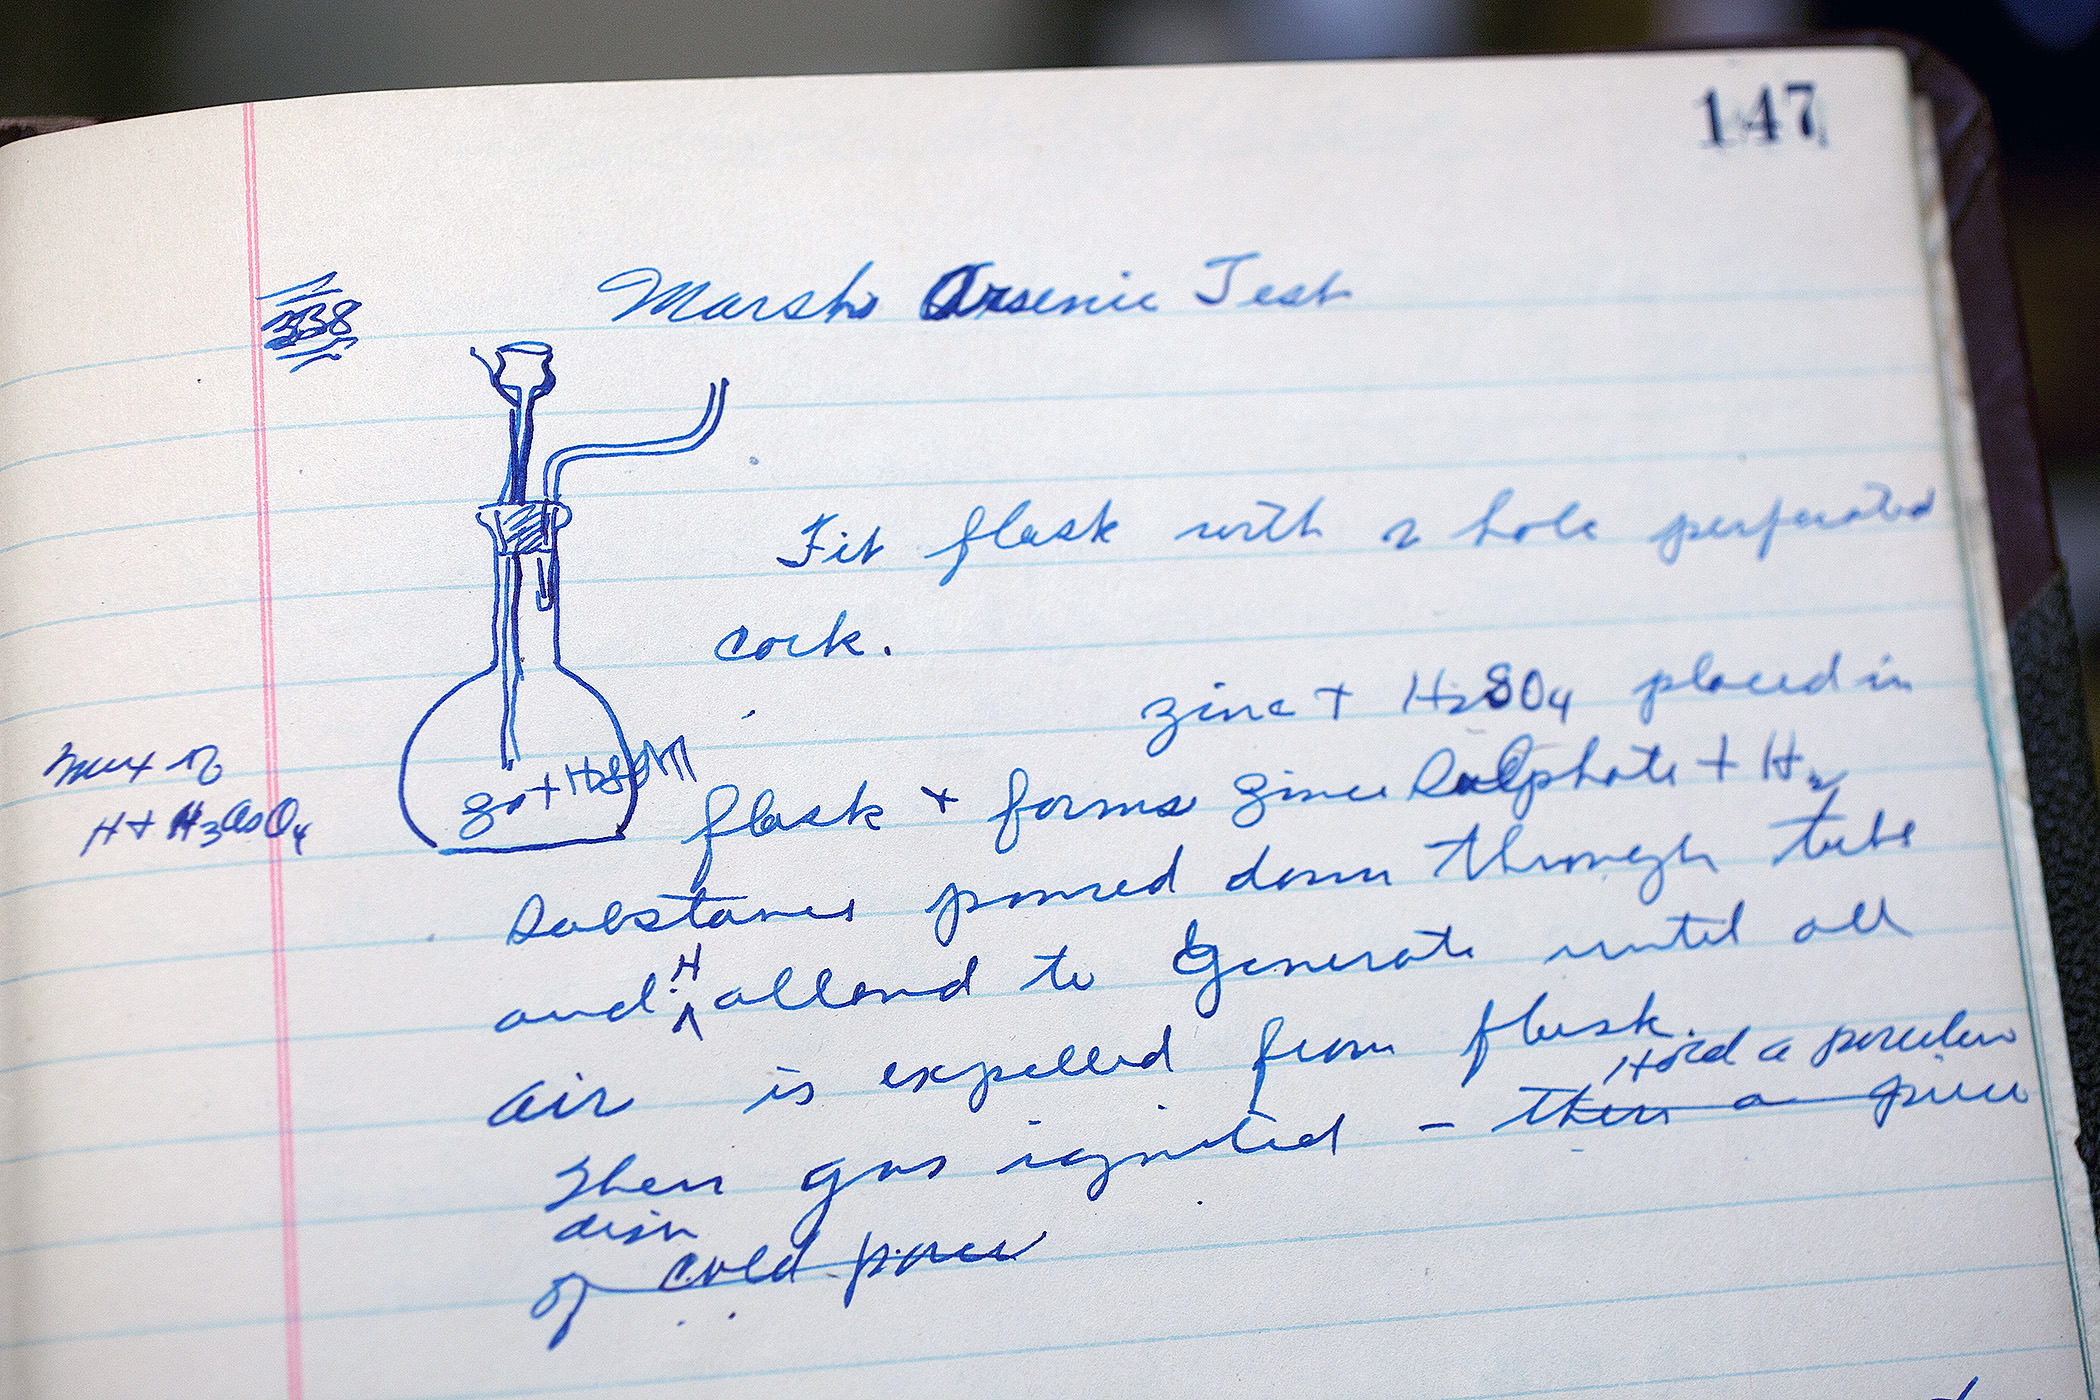 147
338
Marsh Arsenic Test
Fit flask with 2 hole perforated
cork.
zinc + H2SO4 placed in
flask + forms zinc Sulphate + H2
H + H3AsO4
Zn + H2SO4
Substance poured down through tube
and H allowed to generate until all
air is expelled from flask.
Hold a porcelain
Then gas ignited - then a piece
dish
of cold porce